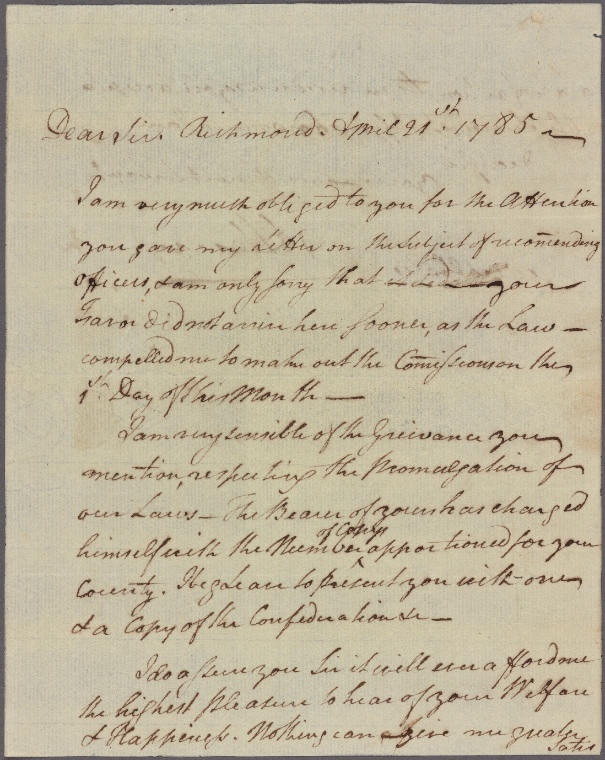 Dear Sir. Richmond. April 21st. 1785
I am very much obliged to you for the Attention
you gave my Letter on the Subject of recomending
officers, & am only sorry that your
Favor did not arrive here sooner, as the Law —
compelled me to make out the Comissions on the
1st. Day of this Month —
I am very sensible of the Grievance you
mention, respecting the Promulgation of
our Laws — The Bearer of yours has charged
himself with the Number of Copys apportioned for your
County. I beg Leave to present you with one
& a Copy of the Confederation &c —
I do assure you Sir it will ever afford me
the highest Pleasure to hear of your Welfare
& Happiness. Nothing can give me greater
Satis